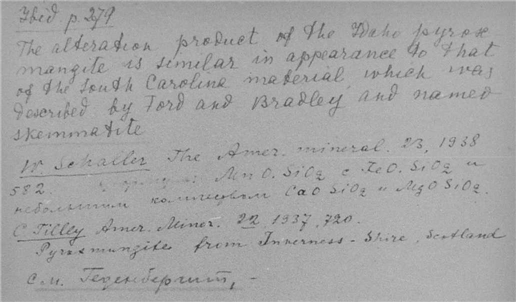 Ibid p. 279
The alteration product of the Idaho pyrox
mangite is similar in appearance to that
of the South Carolina material which was
described by Ford and Bradley and named
skemmatite
W. Schaller The Amer. mineral. 23, 1938
582. MnO.SiO2 с FeO.SiO2 и
небольшим количеством CaO SiO2 и MgO SiO2.
C Tilley Amer. Miner. 22 1937, 720.
Pyroxmangite from Inverness-Shire, Scotland
см. Геденбергит, -